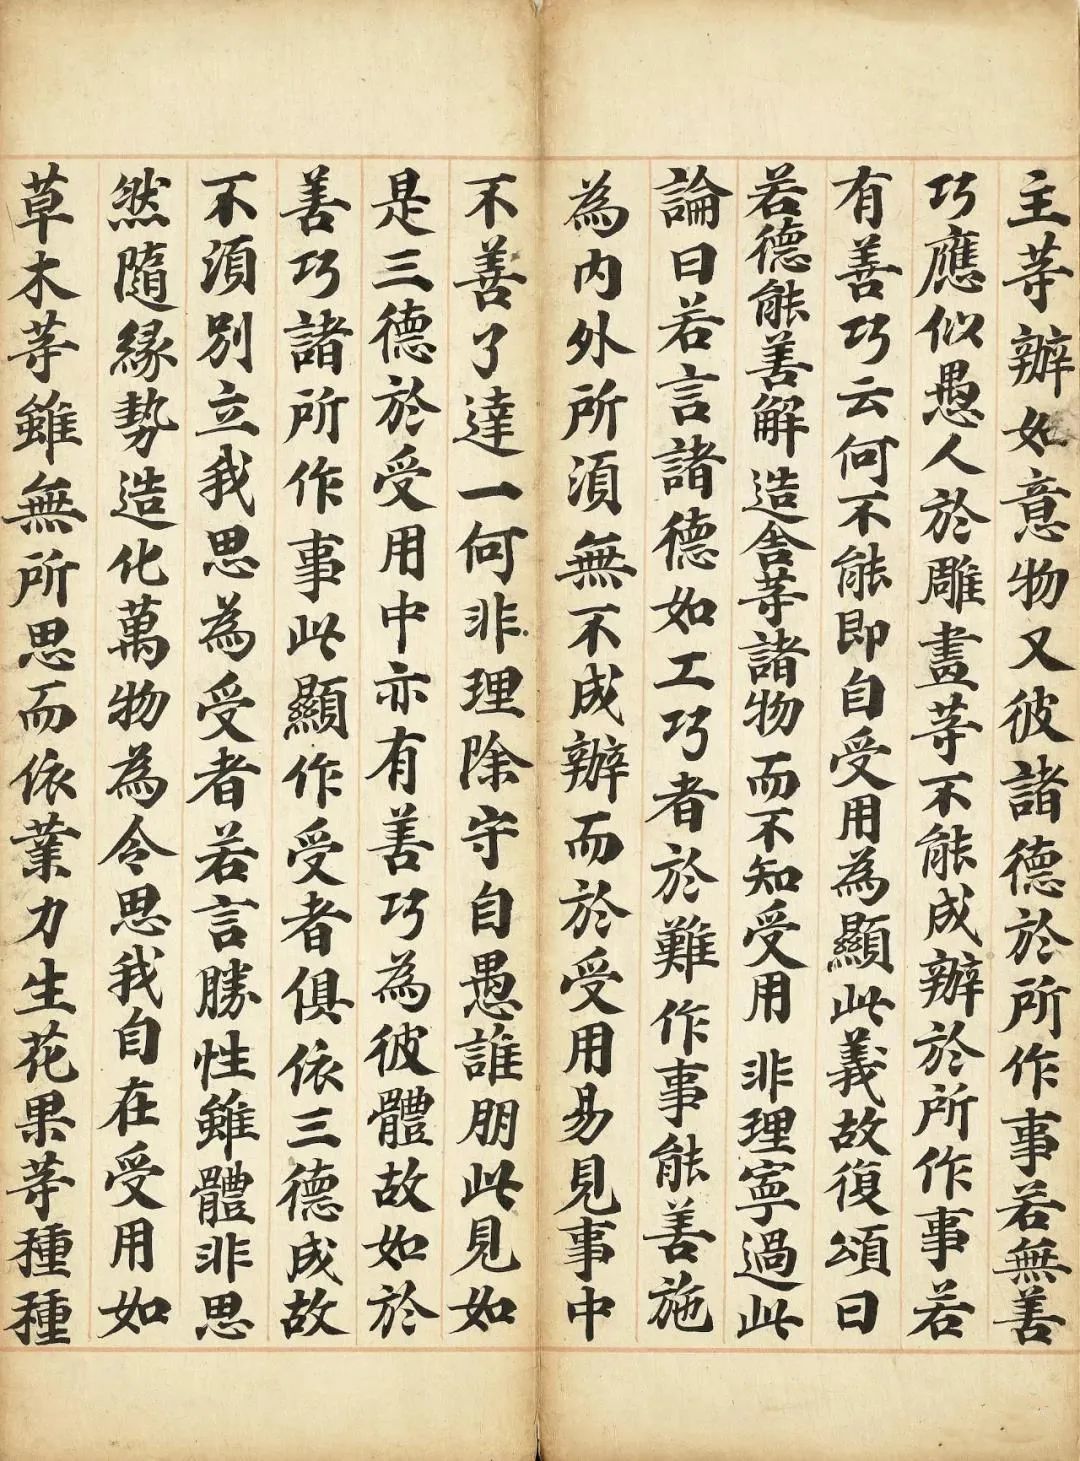 主等辦如意物又彼諸德於所作事若無善
巧應似愚人於雕畫等不能成辦於所作事若
有善巧云何不能即自受用為顯此義故復頌曰
若德能善解造舍等諸物而不知受用　非理寧過此
論曰若言諸德如工巧者於難作事能善施
為內外所須無不成辦而於受用易見事中
不善了達一何非理除守自愚誰朋此見如
是三德於受用中亦有善巧為彼體故如於
善巧諸所作事此顯作受者俱依三德成故
不須別立我思為受者若言勝性雖體非思
然隨緣勢造化萬物為令思我自在受用如
草木等雖無所思而依業力生花果等種種